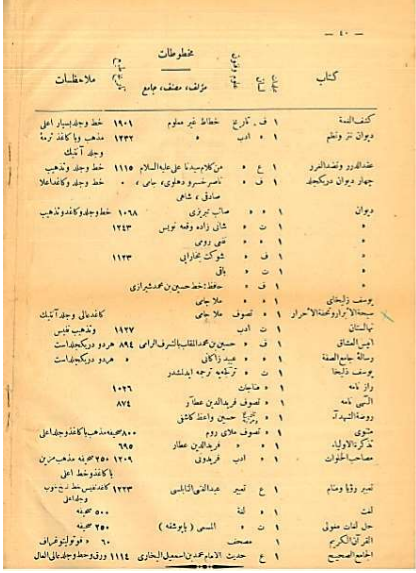 — ٤٠ —
مخطوطات
كتاب عدات لسان علوم وفنون مؤلف، مصنف، جامع تاريخ طبع ملاحظات
كشف الغمة ١ ف تاريخ خطاط غير معلوم ١٩٠١ خط وجلد بسيار اعلى
ديوان نثر ونظم ١ » ادب » ١٢٣٢ مذهب وبا كاغذ ترمة
وجلد آنتيك
عقد الدرر ونضد الغرر ١ ع » من كلام سيدنا على عليه السلام ١١١٥ خط وجلد وتذهيب
چهار ديوان دريكجلد ١ ف » ناصر خسرو دهلوى، جامى، » خط وجلد وكاغذ اعلا
صادقى، شاهى
ديوان ١ » » صائب تبريزى ١٠٦٨ خط وجلد وكاغذ وتذهيب
» ١ ت » شانى زاده وقعه نويس ١٢٤٣
» ١ » » رومى
» ١ ف » شوكت بخارايى ١١٢٣
» ١ ت » باقى
» ١ ف » حافظ: خط حسين بن محمد شيرازى
يوسف زليخاى ١ » » ملا جامى
سبحة الابرار وتحفة الاحرار ١ » تصوف ملا جامى كاغذ عالى وجلد آنتيك
نهالستان ١ ت ادب ١٩٢٧ وتذهيب نفيس
انيس العشاق ١ ف » حسين بن محمد الملقب بالشرف الرامى ٨٩٤ هر دو دريكجلد است
رسالة جامع الصفة ١ » » عبيد زاكانى » هر دو دريكجلد است
يوسف زليخا ١ ت » تركجيه ترجمه ايدلشدر
راز نامه ١ » مناجات ١٠٢٦
الٓهى نامه ١ » تصوف فريد الدين عطار ٨٧٤
روضة الشهدآ ١ » حسين واعظ كاشفى
مثنوى ١ » تصوف ملاى روم ٨٠٠ صحيفه مذهب با كاغذ وجلد اعلى
تذكرة الاولياء ١ » » فريد الدين عطار ٦٩٥
مصاحب الخلوات ١ » ادب فريدونى ١٢٠٩ ٢٥٠ صحيفه مذهب مزين
با كاغذ وخط اعلى
تعبير رؤيا ومنام ١ ع تعبير عبد الغنى النابلسى ١٢٢٣ كاغذ نفيس خط خوب
وجلد اعلى
لغت ١ » لغة ٥٠٠ صحيفه
حل لغات مغولى ١ ت » المسمى ( بابوشقه ) ٢٥٠ صحيفه
القرآن الكريم ١ مصحف ٦٠ » فوتوليتوغراف
الجامع الصحيح ١ ع حديث الامام محمد بن اسمعيل البخارى ١١١٤ ورق وخط وجلد عالى العال